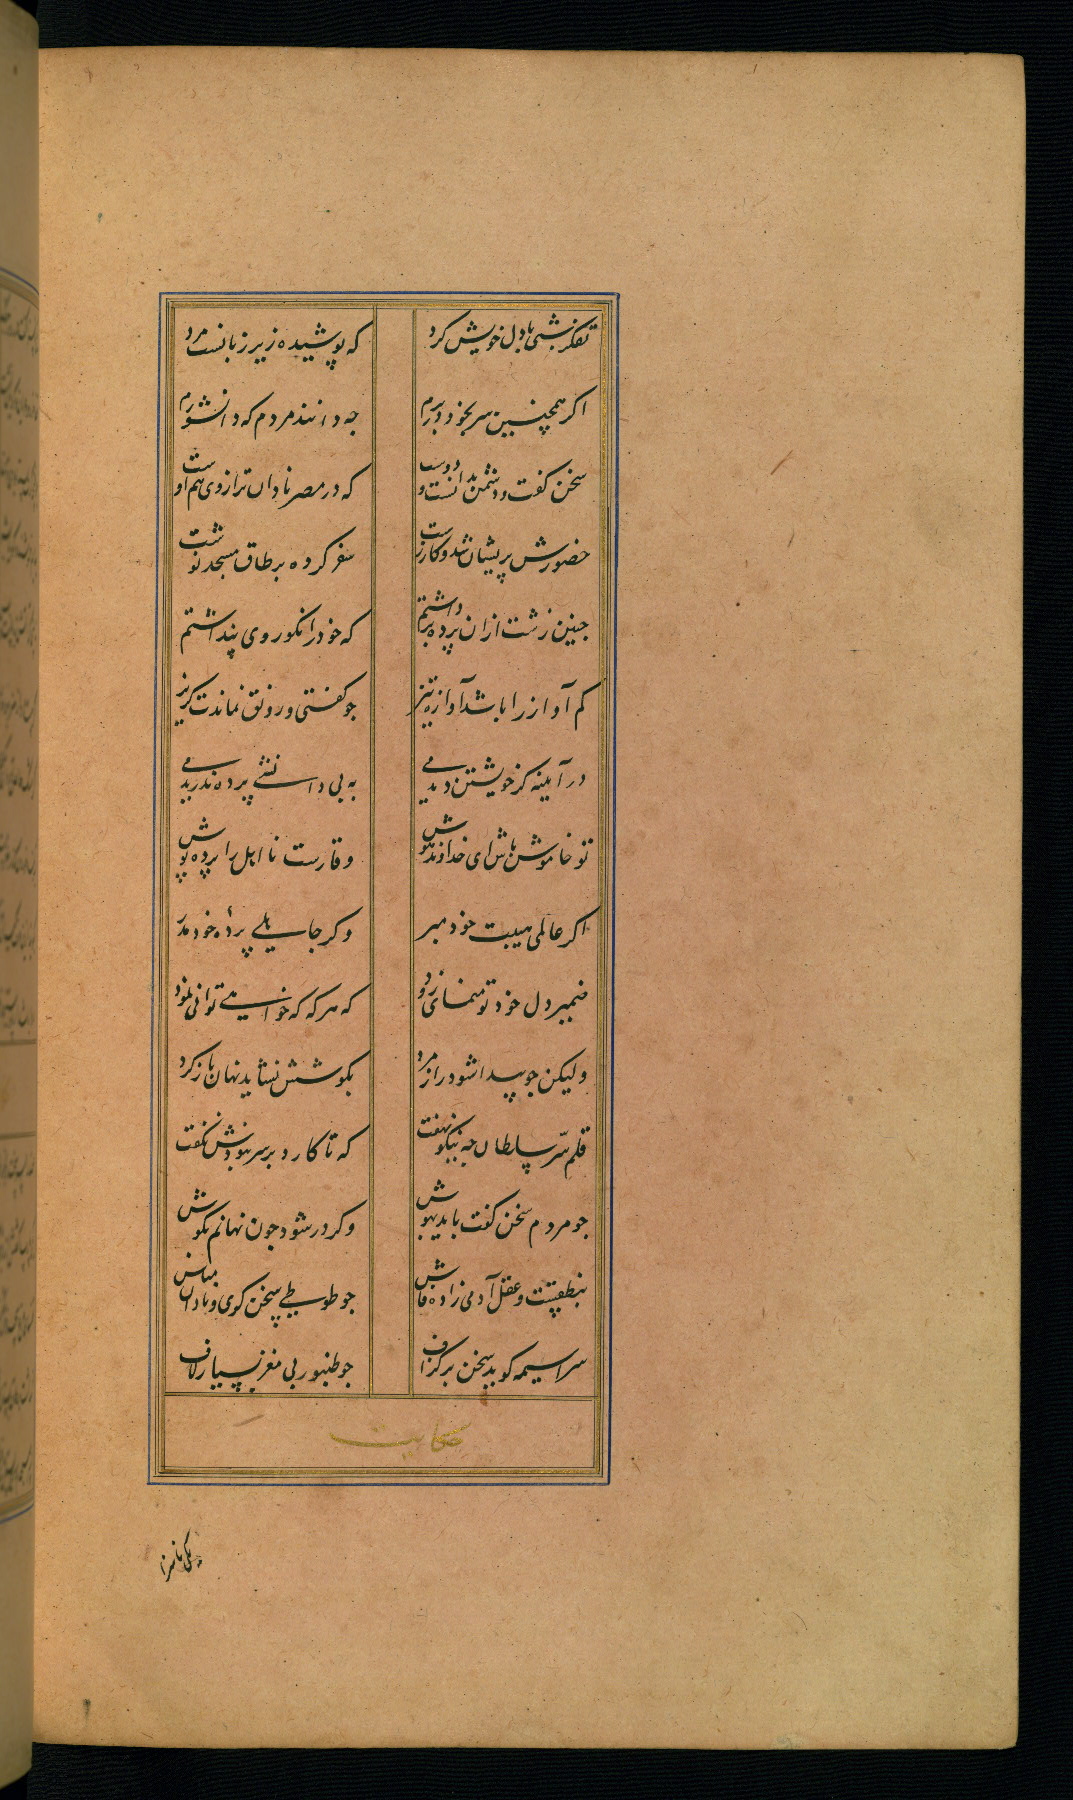 تفکر شبی با دل خویش کرد که پوشیده زیر زبانست مرد
اکر همچنین سر بخود در برم جه دانند مردم که دانشورم
سخن کفت و دشمن بدانست و دوست که در مصر نادان ترازوی هم اوست
حضورش پریشان شد و کار زشت سفر کرد و بر طاق مسجد نوشت
جنین زشت ازان پرده برداشتم که خود را نکوروی پنداشتم
کم آواز را باشد آوازه تیز جو کفتی و رونق نماندت کریز
در آیینه کر خویشتن دیدمی به بی دانشی پرده ندریدمی
تو خاموش باش ای خداوند هوش وقارست نا اهل را پرده پوش
اکر عالمی هیبت خود مبر وکر جاهلی پردۀ خود مدر
ضمیر دل خود تو منمای زود که هرکه که خواهی توانی نمود
ولیکن جو پیدا شود راز مرد بکوشش نشاید نهان باز کرد
قلم سرّ سلطان جه نیکو نهفت که تا کارد بر سر نبودش نکفت
جو مردم سخن کفت باید بهوش وکر در شود جون نهانم بکوش
بنطقست و عقل آدمی زاده فاش جو طوطی سخن کوی و نادان مباش
سراسیمه کوید سخن بر کزاف جو طنبور بی مغز بسیار لاف
حکایت
یکی ناسزا